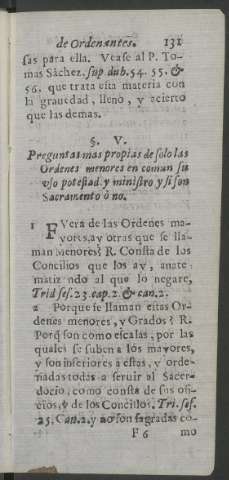 de Ordenantes. 131
sas para ella. Vease al P. To-
mas Sáchez. sup dub. 54. 55. &
56. que trata esta materia con
la grauedad, lleno, y acierto
que las demas.
§. V.
Preguntas mas propias de solo las
Ordenes menores en comun su
uso potestad y ministro y si son
Sacramento ò no.
1 FVera de las Ordenes ma-
yores, ay otras que se lla-
man Menores? R. Consta de los
Concilios que los ay, anate-
matizando al que lo negare,
Trid ses. 23. cap. 2. & can. 2.
2 Porque se llaman estas Or-
denes menores, y Grados? R.
Porq̃ son como escalas, por las
quales se suben a los mayores,
y son inferiores a estas, y orde-
nadas todas a seruir al Sacer-
docio, como consta de sus ofi-
cios, y de los Concilios. Tri. ses.
23. Can. 2. y no son sagradas co-
F 6 mo